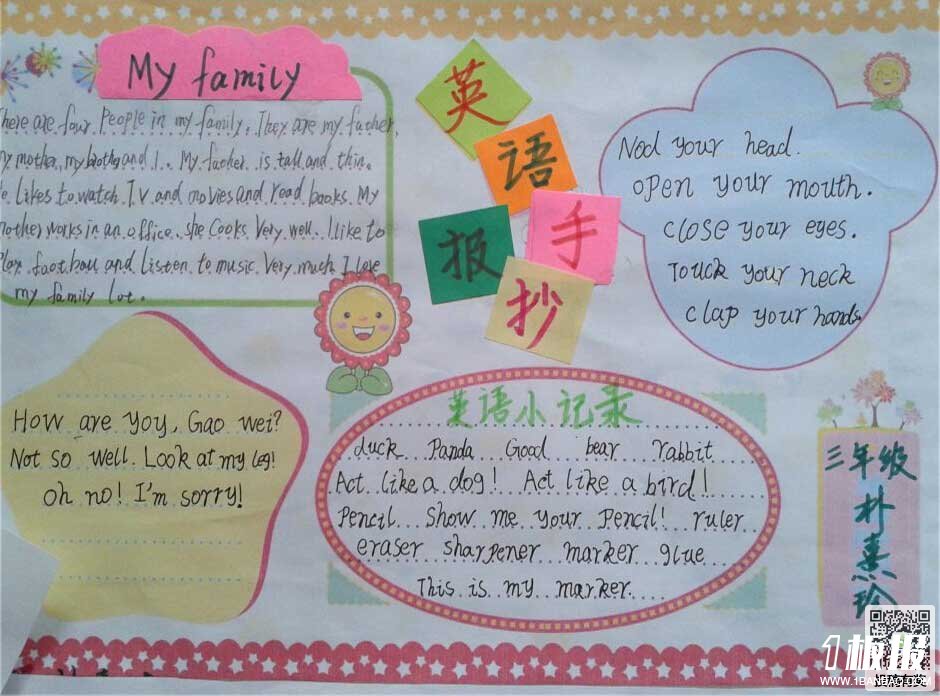 My family
here are four People in my family. They are my father,
my mother, my brother and I. My father. is tall and thin.
e likes to watch T.V and movies and read books. My
mother works in an office. she cooks very well. I like to
Play football and listen to music very much I love
my family lot.
英
语
手
报
抄
Nod your head.
open your mouth.
close your eyes.
Touck your neck
clap your hands.
How are yoy, Gao wei?
Not so well. Look at my leg!
oh no! I'm sorry!
英语小记录
duck Panda Good bear rabbit
Act like a dog! Act like a bird!
Pencil Show me your Pencil! ruler
eraser sharpener marker glue
This is my marker.
三年级
朴
熹
玲
1板报
WWW.1BANBAO.COM